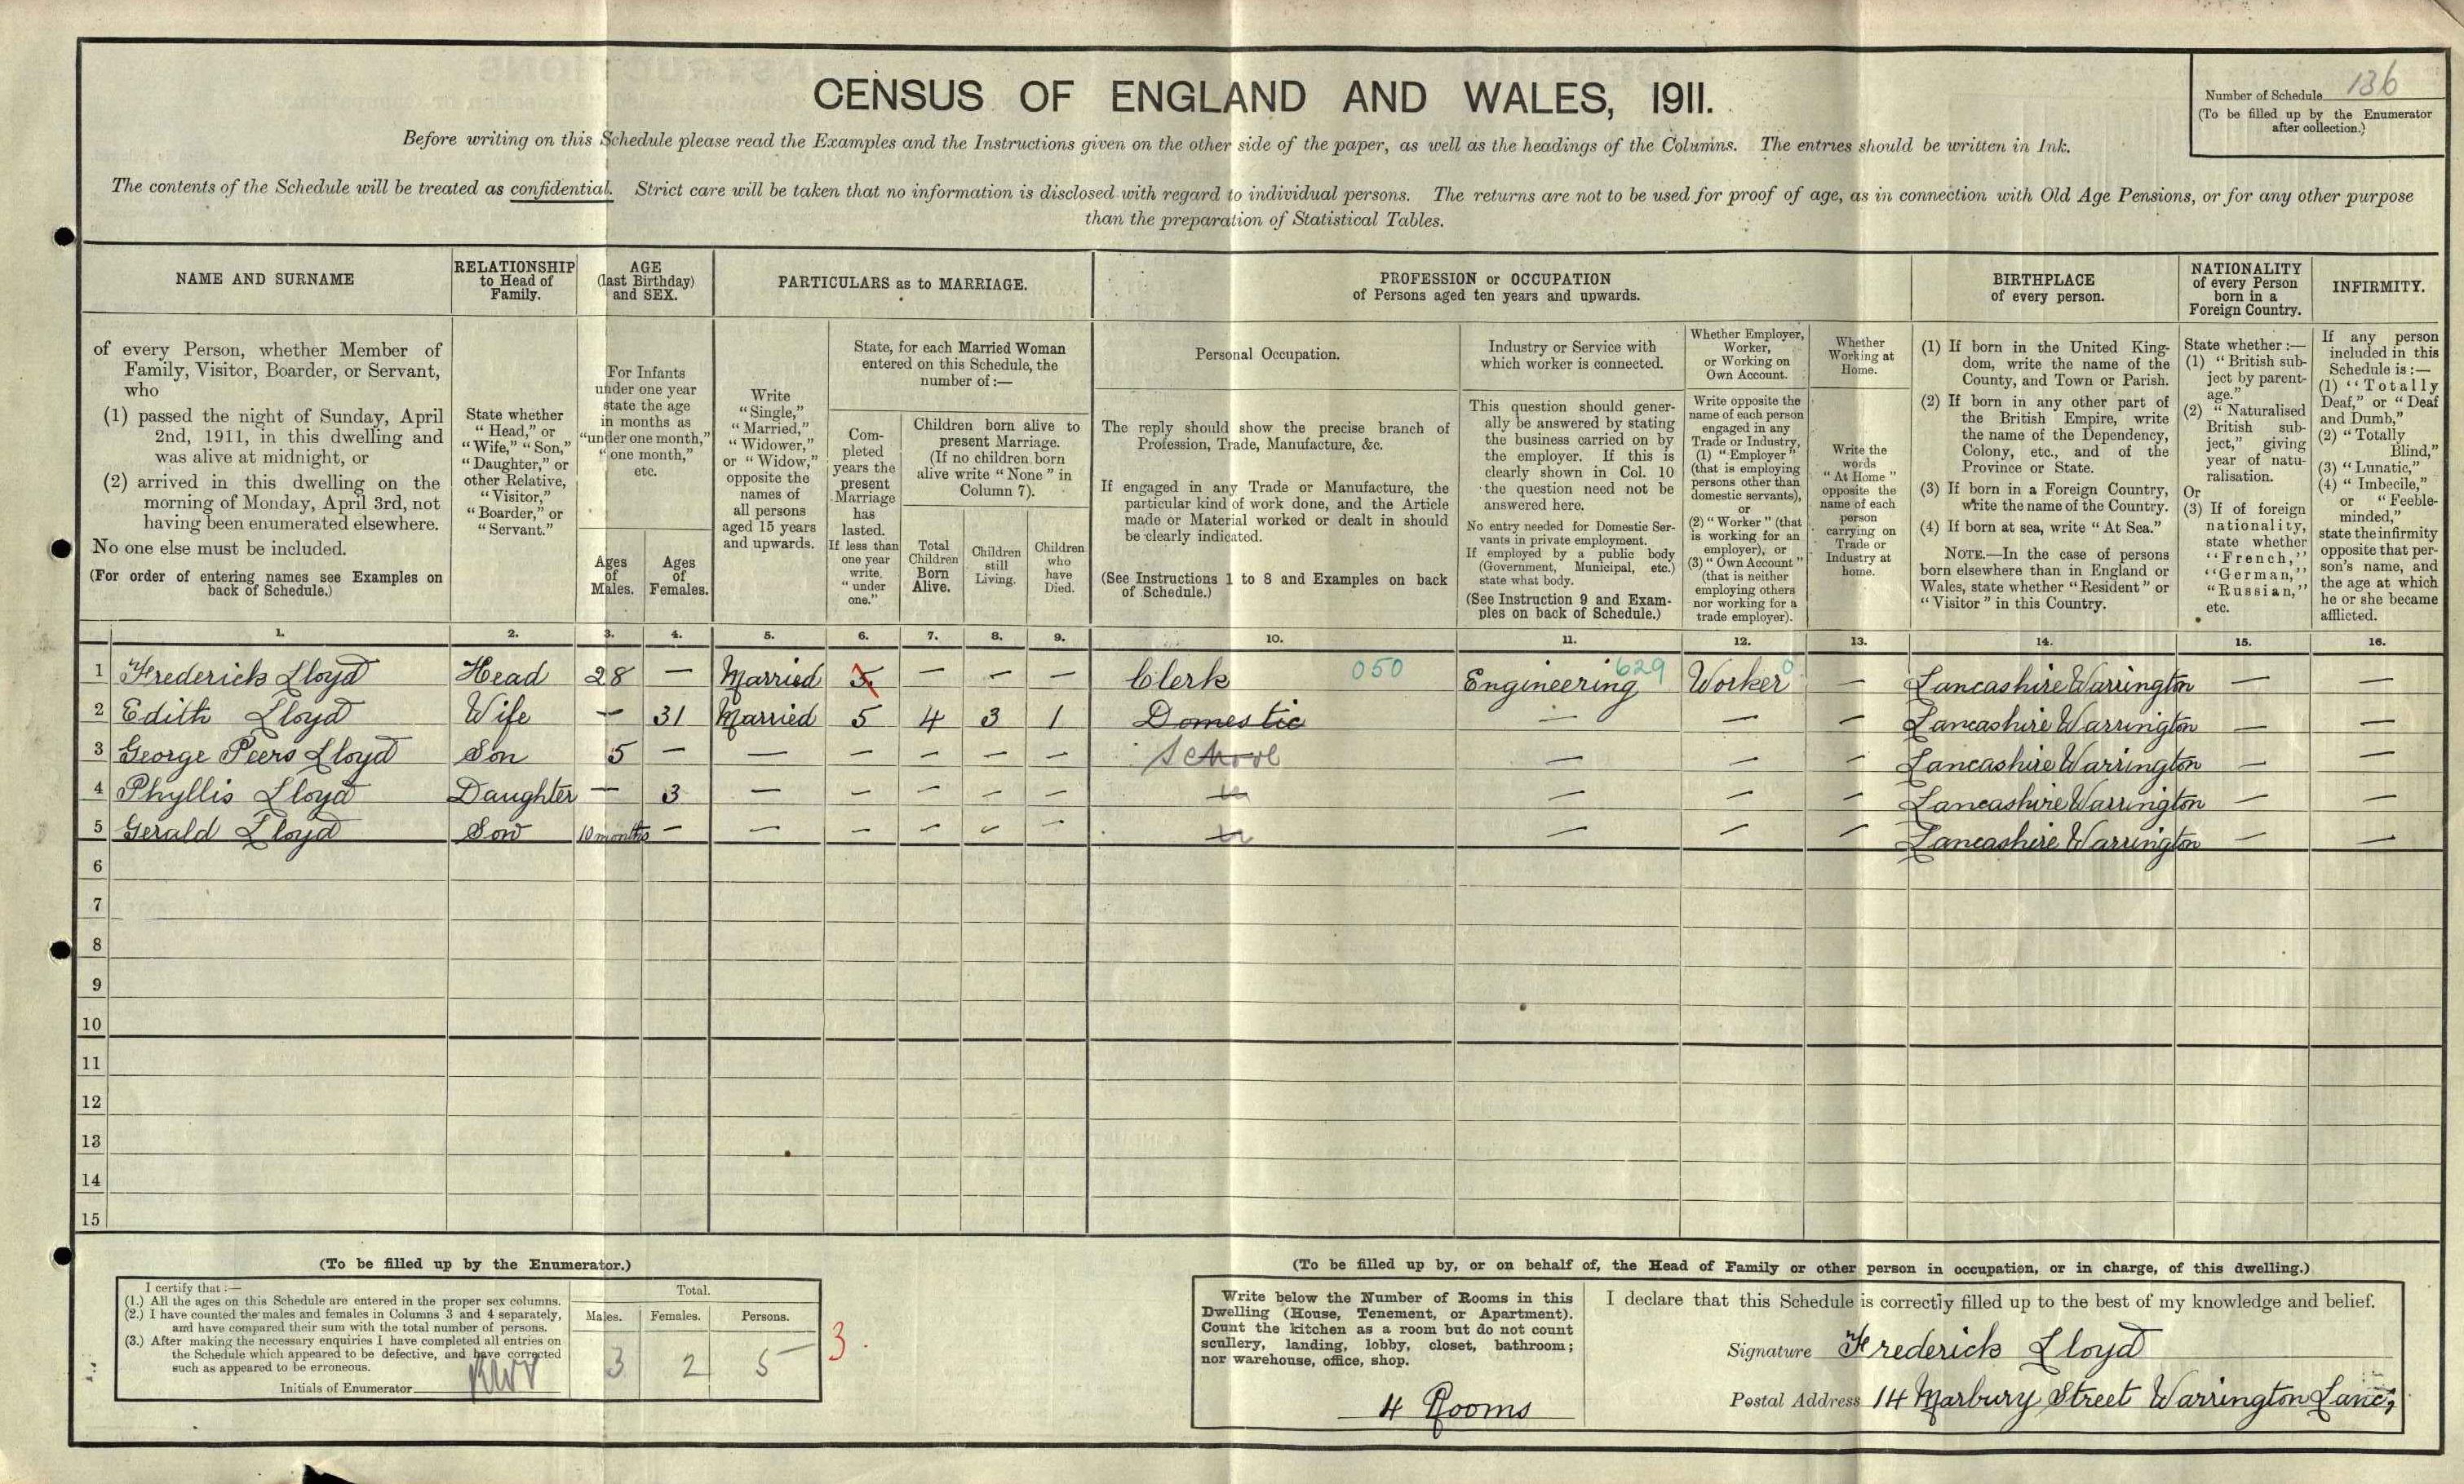 CENSUS OF ENGLAND AND WALES, 1911.
Number of Schedule 136
(To be filled up by the Enumerator
after collection.)
Before writing on this Schedule please read the Examples and the Instructions given on the other side of the paper, as well as the headings of the Columns. The entries should be written in Ink.
The contents of the Schedule will be treated as confidential. Strict care will be taken that no information is disclosed with regard to individual persons. The returns are not to be used for proof of age, as in connection with Old Age Pensions, or for any other purpose
than the preparation of Statistical Tables.
NAME AND SURNAME
of every Person, whether Member of
Family, Visitor, Boarder, or Servant,
who
(1) passed the night of Sunday, April
2nd, 1911, in this dwelling and
was alive at midnight, or
(2) arrived in this dwelling on the
morning of Monday, April 3rd, not
having been enumerated elsewhere.
No one else must be included.
(For order of entering names see Examples on
back of Schedule.)
RELATIONSHIP
to Head of
Family.
State whether
"Head," or
"Wife," "Son,"
"Daughter," or
other Relative,
"Visitor,"
"Boarder," or
"Servant."
AGE
(last Birthday)
and SEX.
For Infants
under one year
state the age
in months as
"under one month,"
"one month,"
etc.
Ages
of
Males.
Ages
of
Females.
PARTICULARS as to MARRIAGE.
Write
"Single,"
"Married,"
"Widower,"
or "Widow,"
opposite the
names of
all persons
aged 15 years
and upwards.
State, for each Married Woman
entered on this Schedule, the
number of:—
Com-
pleted
years the
present
Marriage
has
lasted.
If less than
one year
write
"under
one."
Children born alive to
present Marriage.
(If no children born
alive write "None" in
Column 7).
Total
Children
Born
Alive.
Children
still
Living.
Children
who
have
Died.
PROFESSION or OCCUPATION
of Persons aged ten years and upwards.
Personal Occupation.
The reply should show the precise branch of
Profession, Trade, Manufacture, &c.
If engaged in any Trade or Manufacture, the
particular kind of work done, and the Article
made or Material worked or dealt in should
be clearly indicated.
(See Instructions 1 to 8 and Examples on back
of Schedule.)
Industry or Service with
which worker is connected.
This question should gener-
ally be answered by stating
the business carried on by
the employer. If this is
clearly shown in Col. 10
the question need not be
answered here.
No entry needed for Domestic Ser-
vants in private employment.
If employed by a public body
(Government, Municipal, etc.)
state what body.
(See Instruction 9 and Exam-
ples on back of Schedule.)
Whether Employer,
Worker,
or Working on
Own Account.
Write opposite the
name of each person
engaged in any
Trade or Industry,
(1) "Employer"
(that is employing
persons other than
domestic servants),
or
(2) "Worker" (that
is working for an
employer), or
(3) "Own Account"
(that is neither
employing others
nor working for a
trade employer).
Whether
Working at
Home.
Write the
words
"At Home"
opposite the
name of each
person
carrying on
Trade or
Industry at
home.
BIRTHPLACE
of every person.
(1) If born in the United King-
dom, write the name of the
County, and Town or Parish.
(2) If born in any other part of
the British Empire, write
the name of the Dependency,
Colony, etc., and of the
Province or State.
(3) If born in a Foreign Country,
write the name of the Country.
(4) If born at sea, write "At Sea."
NOTE.—In the case of persons
born elsewhere than in England or
Wales, state whether "Resident" or
"Visitor" in this Country.
NATIONALITY
of every Person
born in a
Foreign Country.
State whether:—
(1) "British sub-
ject by parent-
age."
(2) "Naturalised
British sub-
ject," giving
year of natu-
ralisation.
Or
(3) If of foreign
nationality,
state whether
"French,"
"German,"
"Russian,"
etc.
INFIRMITY.
If any person
included in this
Schedule is:—
(1) "Totally
Deaf," or "Deaf
and Dumb,"
(2) "Totally
Blind,"
(3) "Lunatic,"
(4) "Imbecile,"
or "Feeble-
minded,"
state the infirmity
opposite that per-
son's name, and
the age at which
he or she became
afflicted.
1. 2. 3. 4. 5. 6. 7. 8. 9. 10. 11. 12. 13. 14. 15. 16.
1 Frederick Lloyd Head 28 — Married 5 — — — Clerk 050 Engineering 629 Worker 0 — Lancashire Warrington — —
2 Edith Lloyd Wife — 31 Married 5 4 3 1 Domestic — — — Lancashire Warrington — —
3 George Peers Lloyd Son 5 — — — — — — School — — — Lancashire Warrington — —
4 Phyllis Lloyd Daughter — 3 — — — — — — — — Lancashire Warrington — —
5 Gerald Lloyd Son 10 months — — — — — — — — — Lancashire Warrington — —
6
7
8
9
10
11
12
13
14
15
(To be filled up by the Enumerator.)
I certify that:—
(1.) All the ages on this Schedule are entered in the proper sex columns.
(2.) I have counted the males and females in Columns 3 and 4 separately,
and have compared their sum with the total number of persons.
(3.) After making the necessary enquiries I have completed all entries on
the Schedule which appeared to be defective, and have corrected
such as appeared to be erroneous.
Initials of Enumerator
Total.
Males. Females. Persons.
3 2 5
3.
(To be filled up by, or on behalf of, the Head of Family or other person in occupation, or in charge, of this dwelling.)
Write below the Number of Rooms in this
Dwelling (House, Tenement, or Apartment).
Count the kitchen as a room but do not count
scullery, landing, lobby, closet, bathroom;
nor warehouse, office, shop.
4 Rooms
I declare that this Schedule is correctly filled up to the best of my knowledge and belief.
Signature Frederick Lloyd
Postal Address 14 Marbury Street Warrington Lancs